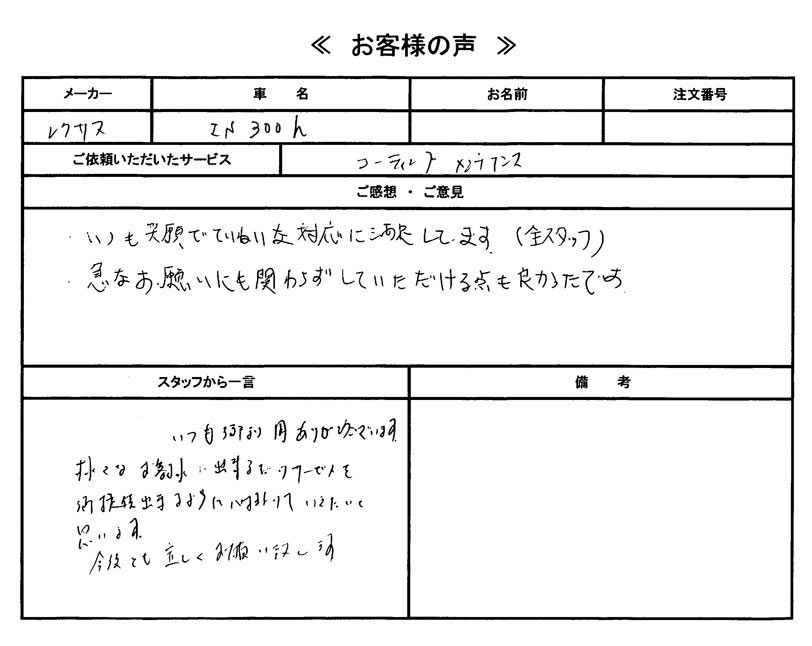 ≪ お客様の声 ≫
メーカー 車 名 お名前 注文番号
レクサス IN 300h
ご依頼いただいたサービス コーティング メンテナンス
ご感想 ・ ご意見
・いつも笑顔でていねいな対応に満足してます (全スタッフ)
・急なお願いにも関わらずしていただける点も良かったです。
スタッフから一言 備 考
いつも御利用ありがとうございます。
様々なお客様に出来るだけサービスを
出来るように心掛けて いきたいと
思います。
今後とも宜しくお願い致します